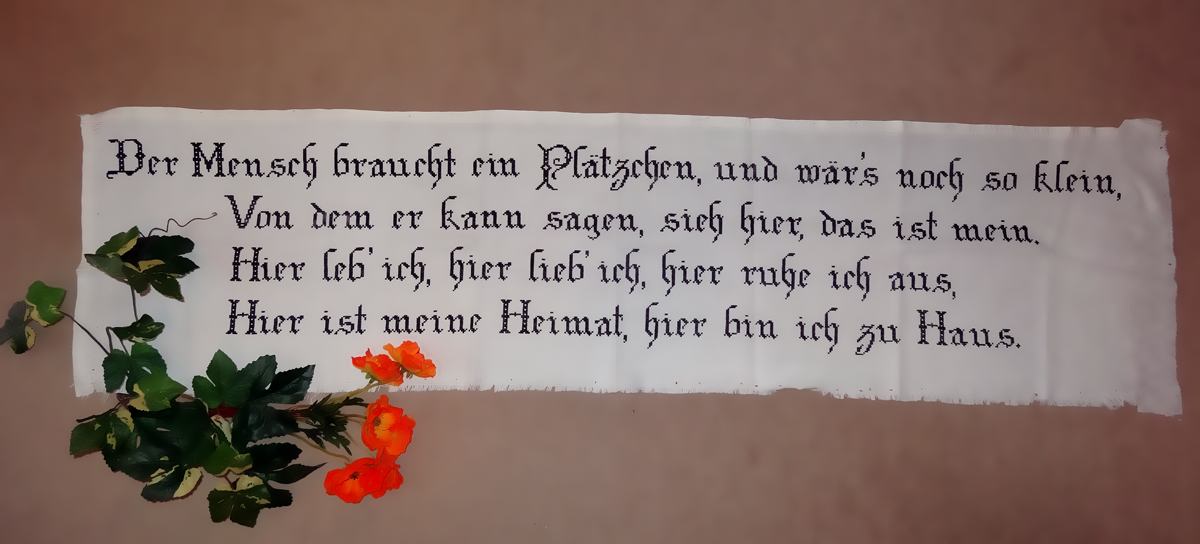 Der Mensch braucht ein Plätzchen, und wär's noch so klein,
Von dem er kann sagen, sieh hier, das ist mein.
Hier leb' ich, hier lieb' ich, hier ruhe ich aus,
Hier ist meine Heimat, hier bin ich zu Haus.